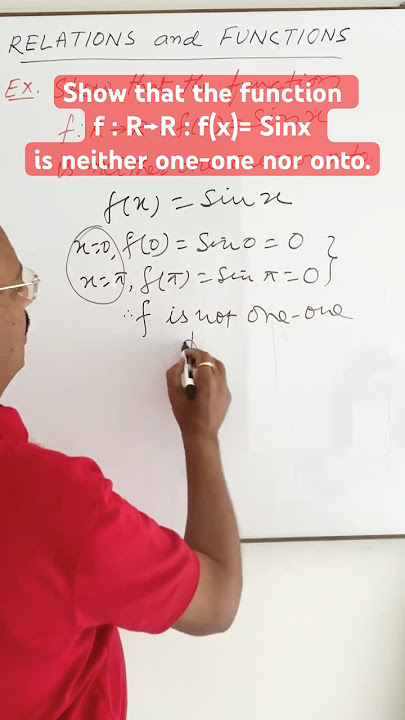 RELATIONS and FUNCTIONS
Ex. Show that the function
Show that the function
f : R→R : f(x)= Sinx
is neither one-one nor onto.
f(x) = Sinx
x=0, f(0) = Sin0 = 0
x=π, f(π) = Sin π = 0
∴ f is not one-one